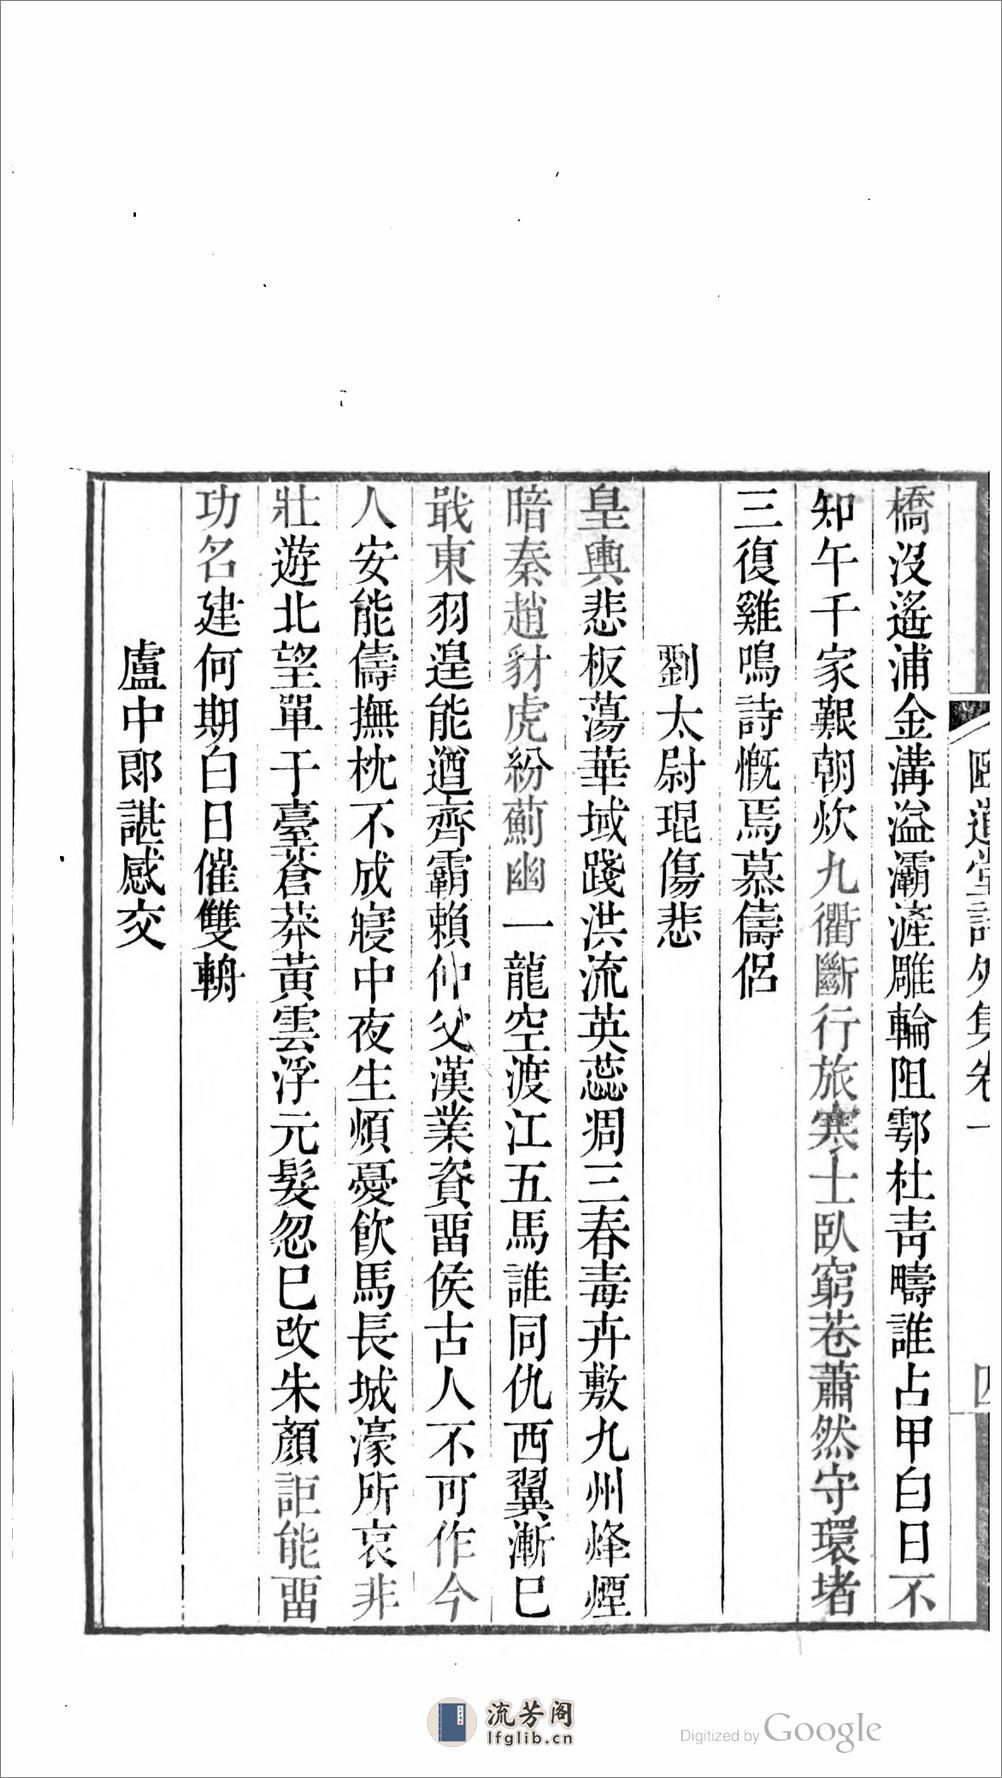 道堂詩外集卷一
四
橋沒遙浦金溝溢灞滻雕輪阻鄠杜靑疇誰占甲白日不
知午千家艱朝炊九衢斷行旅寒士臥窮巷蕭然守環堵
三復雞鳴詩慨焉慕儔侶
劉太尉琨傷悲
皇輿悲板蕩華域踐洪流英蕊凋三春毒卉敷九州烽煙
暗秦趙豺虎紛薊幽一龍空渡江五馬誰同仇西翼漸已
戢東羽遑能遒齊霸賴仲父漢業資畱侯古人不可作今
人安能儔撫枕不成寢中夜生煩憂飮馬長城濠所哀非
壯遊北望單于臺蒼莽黃雲浮元髮忽已改朱顏詎能畱
功名建何期白日催雙輈
盧中郎諶感交
流芳阁
lfglib.cn
Digitized by Google